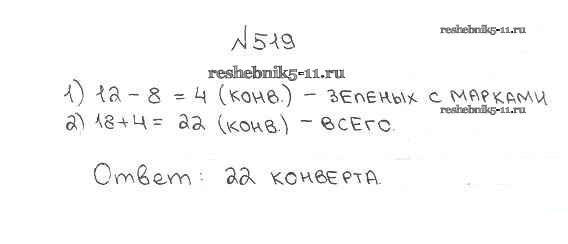 reshebnik5-11.ru
№519
reshebnik5-11.ru
1) 12 - 8 = 4 (конв.) - зеленых с марками
reshebnik5-11.ru
2) 18+4 = 22 (конв.) - всего.
Ответ: 22 конверта.